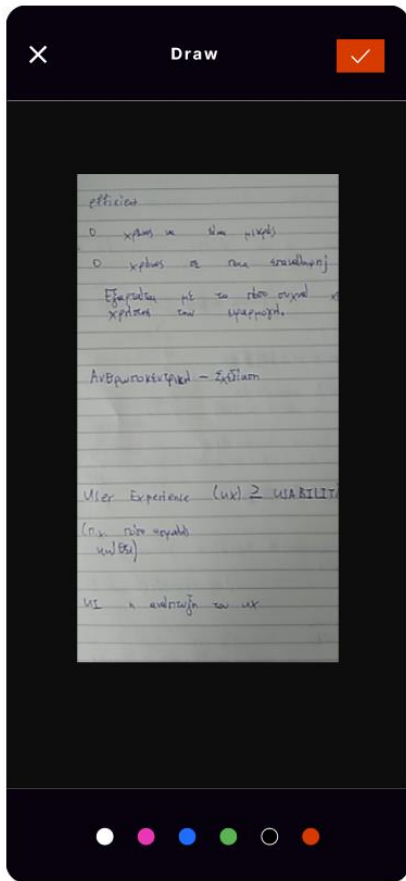 Draw
Ο χρόνος να είναι μικρός
Ο χρόνος σε
Εξαρτάται με το πόσο συχνά
χρήστης την εφαρμογή.
Ανθρωποκεντρική - Σχεδίαση
User Experience (UX) ≥ USABILIT
(π.χ. πόσο
UI η ανάπτυξη του UX